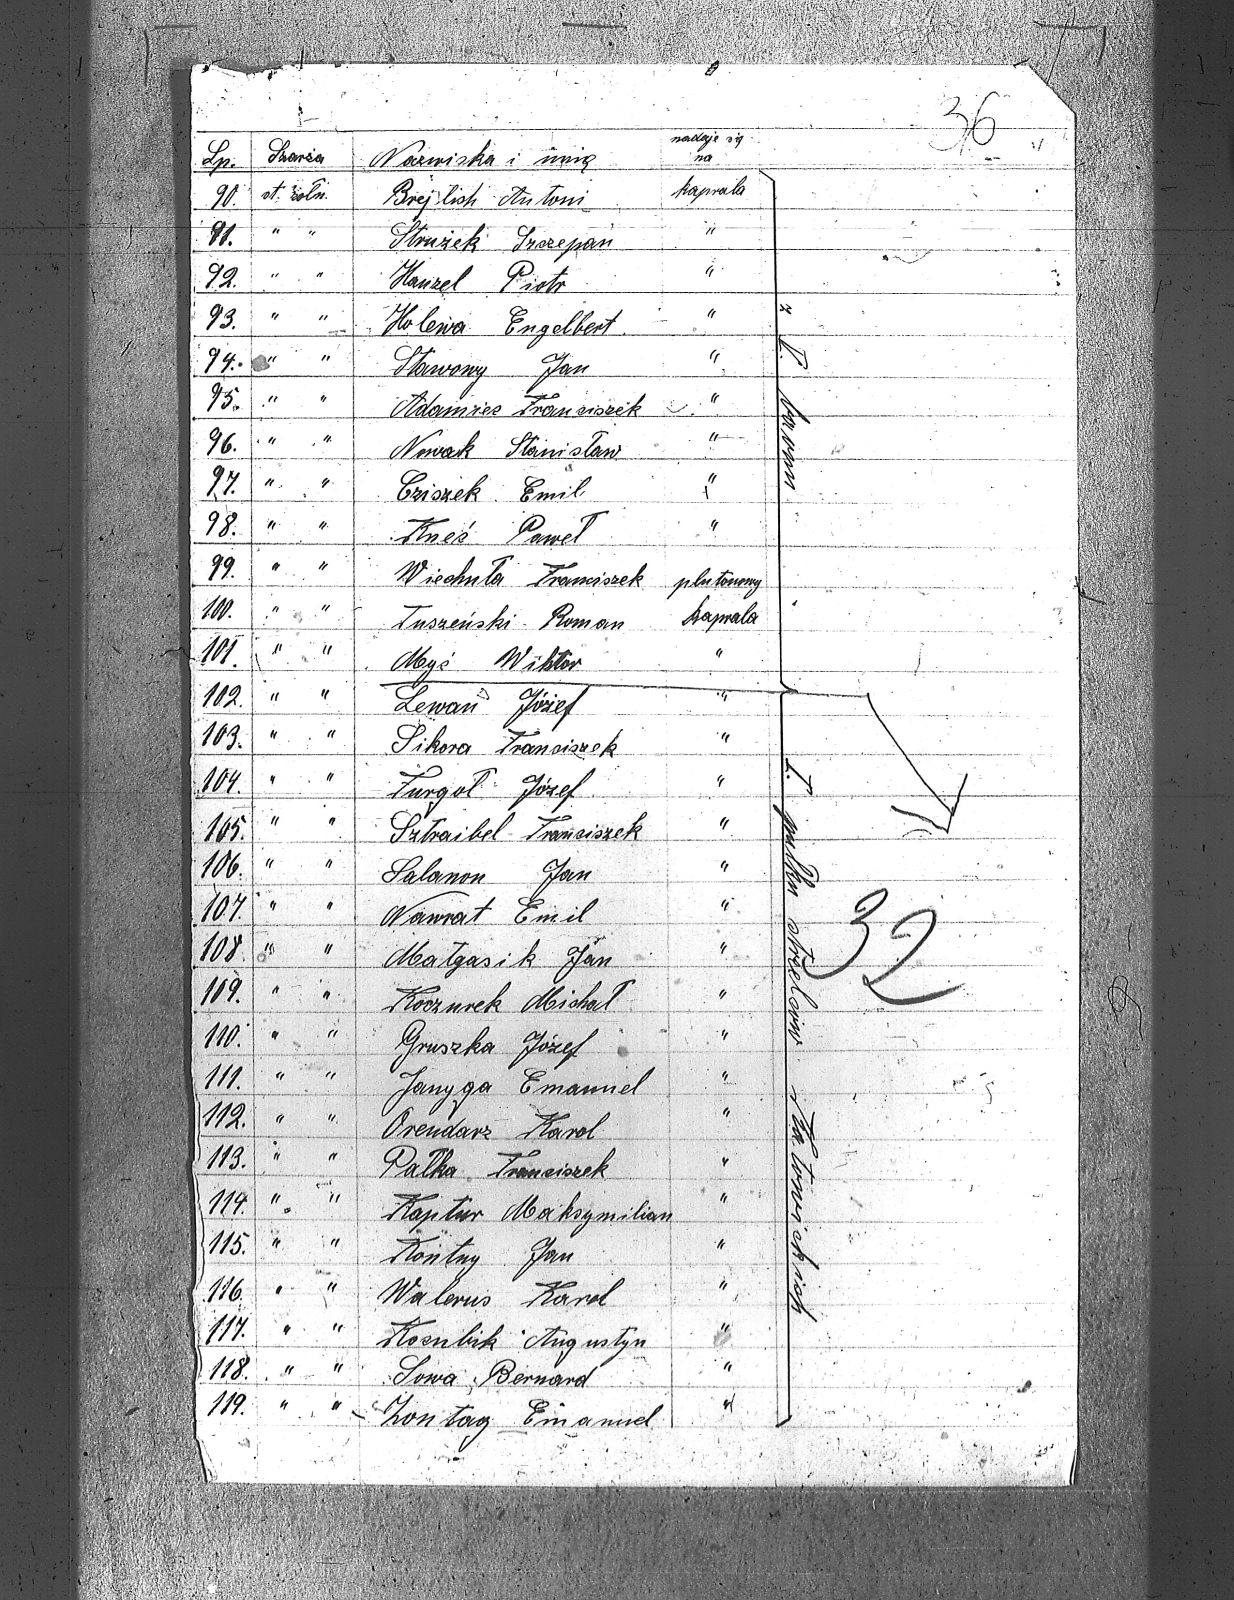 36
Lp. Szarża Nazwiska i imię nadaje się na
90. st. żołn. Brejlich Antoni kaprala
91. " " Strużek Szczepan "
92. " " Hanzel Piotr "
93. " " Holewa Engelbert "
94. " " Stawowy Jan "
95. " " Adamiec Franciszek "
96. " " Nowak Stanisław "
97. " " Cziszek Emil "
98. " " Kneć Paweł "
99. " " Wiechuła Franciszek plutonowy
100. " " Tuszeński Roman kaprala
101. " " Myś Wiktor "
102. " " Lewan Józef "
103. " " Sikora Franciszek "
104. " " Furgoł Józef "
105. " " Sztraibel Franciszek "
106. " " Salamon Jan "
107. " " Nawrat Emil "
108. " " Małgasik Jan "
109. " " Koczurek Michał "
110. " " Gruszka Józef "
111. " " Janyga Emanuel "
112. " " Orendarz Karol "
113. " " Pałka Franciszek "
114. " " Kaptur Maksymilian "
115. " " Kontny Jan "
116. " " Walerus Karol "
117. " " Kosubik Augustyn "
118. " " Sowa Bernard "
119. " " Zontag Emanuel "
I. pułku strzelców
32